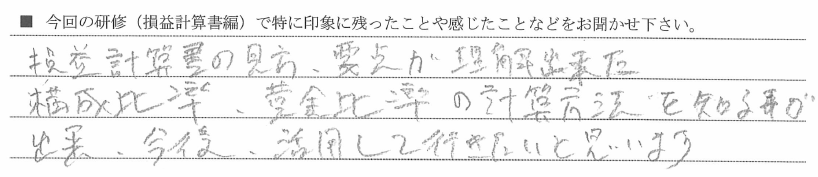 ■ 今回の研修（損益計算書編）で特に印象に残ったことや感じたことなどをお聞かせ下さい。
損益計算書の見方、要点が理解出来た
構成比率、黄金比率の計算方法を知る事が
出来、今後、活用して行きたいと思います